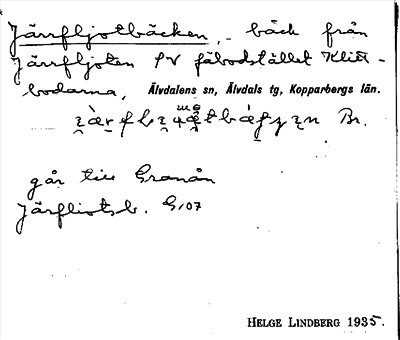 Järrfljotbäcken, - bäck från
Järrfljoten SV fäbodstället Klitt-
bodarna, Älvdalens sn, Älvdals tg, Kopparbergs län.
Br.
går till Granån
Järfliotsb. G107
HELGE LINDBERG 1935.